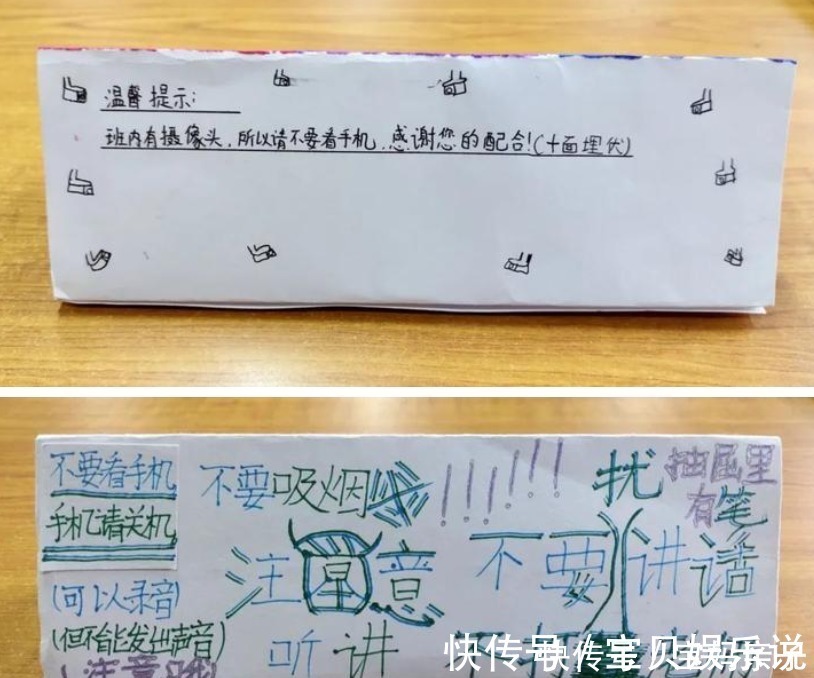 温馨提示:
班内有摄像头,所以请不要看手机,感谢您的配合!(十面埋伏)
不要看手机
手机请关机
(可以录音)
(但不能发出声音)
不要吸烟!!!!!!
注意
听讲
不要讲话
扰
抽屉里
有笔
快传号/宝贝娱乐说
快传号/